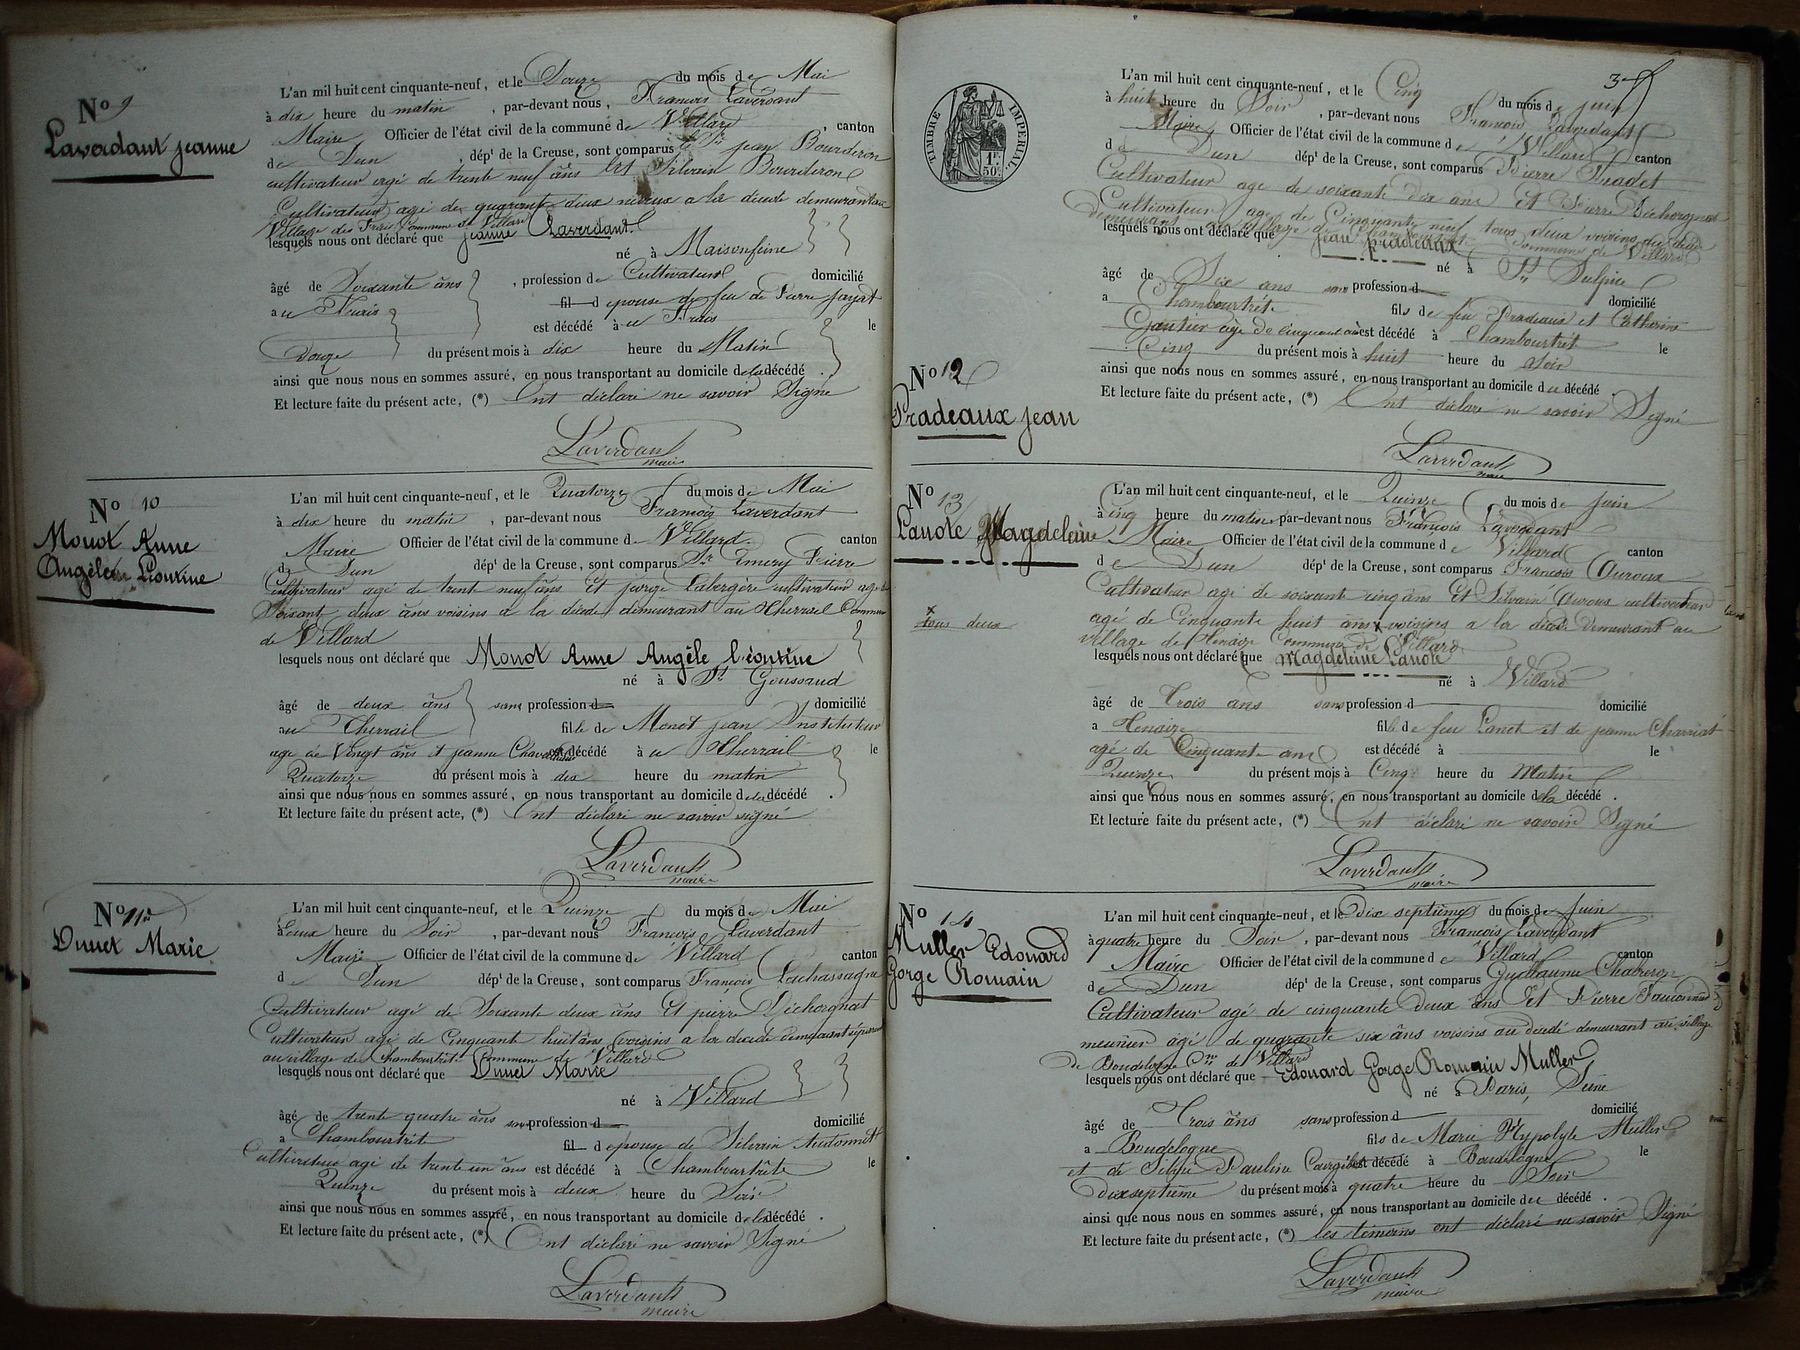 N° 9
Laverdant jeanne
L'an mil huit cent cinquante-neuf, et le Douze du mois de Mai
à dix heure du matin, par-devant nous, François Laverdant
Maire Officier de l'état civil de la commune de Villard, canton
de Dun, dépt de la Creuse, sont comparus le Sr jean Bourderon
cultivateur agé de trente neuf ans Et Silvain Bourderon
Cultivateur agé de quarante deux neveux a la décédé demeurant au
Village des Frais Commune de Villard
lesquels nous ont déclaré que jeanne Laverdant
né à Maisonfeine
âgé de Soixante ans, profession de Cultivateur domicilié
au Frais fil d epouse de feu de Pierre jayat
est décédé à u Frais le
Douze du présent mois à dix heure du Matin
ainsi que nous nous en sommes assuré, en nous transportant au domicile de la décédé.
Et lecture faite du présent acte, (*) Ont déclaré ne savoir Signé
Laverdant
maire
N° 10
Monot Anne
Angèle Léontine
L'an mil huit cent cinquante-neuf, et le Quatorze du mois de Mai
à dix heure du matin, par-devant nous François Laverdant
Maire Officier de l'état civil de la commune de Villard. canton
de Dun dépt de la Creuse, sont comparus Sr Emery Pierre
Cultivateur agé de trente neuf ans Et jorge Labergère cultivateur agé de
Soixant deux ans voisins a la décédé demeurant au Cherrail Commune
de Villard
lesquels nous ont déclaré que Monot Anne Angèle Léontine
né à St Goussaud
âgé de deux ans sans profession d domicilié
au Cherrail fille de Monot jean Instituteur
agé de Vingt ans et jeanne est décédé à u Cherrail le
Quatorze du présent mois à dix heure du matin
ainsi que nous nous en sommes assuré, en nous transportant au domicile de la décédé.
Et lecture faite du présent acte, (*) Ont déclaré ne savoir signé
Laverdant
maire
N° 11
Dunet Marie
L'an mil huit cent cinquante-neuf, et le Quinze du mois de Mai
à deux heure du Soir, par-devant nous François Laverdant
Maire Officier de l'état civil de la commune de Villard canton
de Dun dépt de la Creuse, sont comparus François Lachassagne
Cultivateur agé de Soixante deux ans Et pierre Déchorgnat
Cultivateur agé de Cinquant huit ans voisins a la décédé demeurant
au village de Chambourtrêt Commune de Villard
lesquels nous ont déclaré que Dunet Marie
né à Villard
âgé de trente quatre ans sans profession d domicilié
a Chambourtrit fil d epouse de Silvain
Cultivateur agé de trente un ans est décédé à Chambourtrête le
Quinze du présent mois à deux heure du Soir
ainsi que nous nous en sommes assuré, en nous transportant au domicile de la décédé.
Et lecture faite du présent acte, (*) Ont déclaré ne savoir Signé
Laverdant
maire
TIMBRE IMPÉRIAL
1F.
50C.
N° 12
Pradeaux jean
L'an mil huit cent cinquante-neuf, et le Cinq du mois de juin
à huit heure du Soir, par-devant nous François Laverdant
Maire, Officier de l'état civil de la commune de Villard canton
de Dun dépt de la Creuse, sont comparus Pierre Pradet
Cultivateur agé de soixante dix ans Et Pierre Déchorgnat
Cultivateur agé de Cinquante neuf tous deux voisins du décédé
demeurant au village de Chambourtret Commune de Villard
lesquels nous ont déclaré que jean Pradeaux
né à St Sulpice
âgé de Dix ans sans profession d domicilié
a Chambourtrêt fils de feu Pradeaux et Catherine
Gautier agé de cinquant ans est décédé à Chambourtrêt le
Cinq du présent mois à huit heure du Soir
ainsi que nous nous en sommes assuré, en nous transportant au domicile du décédé
Et lecture faite du présent acte, (*) Ont déclaré ne savoir Signé
Laverdant
maire
N° 13
Lanote Magdeleine
x
tous deux
L'an mil huit cent cinquante-neuf, et le Quinze du mois de juin
à cinq heure du matin par-devant nous François Laverdant
Maire Officier de l'état civil de la commune de Villard canton
de Dun dépt de la Creuse, sont comparus François Auroux
Cultivateur agé de soixant cinq ans Et Silvain Auroux cultivateur
agé de Cinquante huit ans x voisins a la décédé demeurant au
village de Henaize Commune de Villard
lesquels nous ont déclaré que Magdeleine Lanote
né à Villard
âgé de Trois ans sans profession d domicilié
a Henaize fille de feu Lanot et de jeanne Charriat
agé de Cinquante ans est décédé à le
Quinze du présent mois à Cinq heure du Matin
ainsi que nous nous en sommes assuré, en nous transportant au domicile de la décédé.
Et lecture faite du présent acte, (*) Ont déclaré ne savoir Signé
Laverdant
maire
N° 14
Muller Edouard
Gorge Romain
L'an mil huit cent cinquante-neuf, et le Dix septième du mois de Juin
à quatre heure du Soir, par-devant nous François Laverdant
Maire Officier de l'état civil de la commune de Villard canton
de Dun dépt de la Creuse, sont comparus Guillaume Chaberon
Cultivateur agé de cinquante Deux ans Et Pierre
meunier agé de quarante six ans voisins au décédé demeurant au village
de Boudelogne Cne de Villard
lesquels nous ont déclaré que Edouard Gorge Romain Muller
né à Paris, Seine
âgé de Trois ans sans profession d domicilié
a Boudelogne fils de Marie Hypolyte Muller
et de Pauline est décédé à Boudelogne le
Dixseptième du présent mois à quatre heure du Soir
ainsi que nous nous en sommes assuré, en nous transportant au domicile du décédé.
Et lecture faite du présent acte, (*) les témoins ont déclaré ne savoir Signé
Laverdant
maire